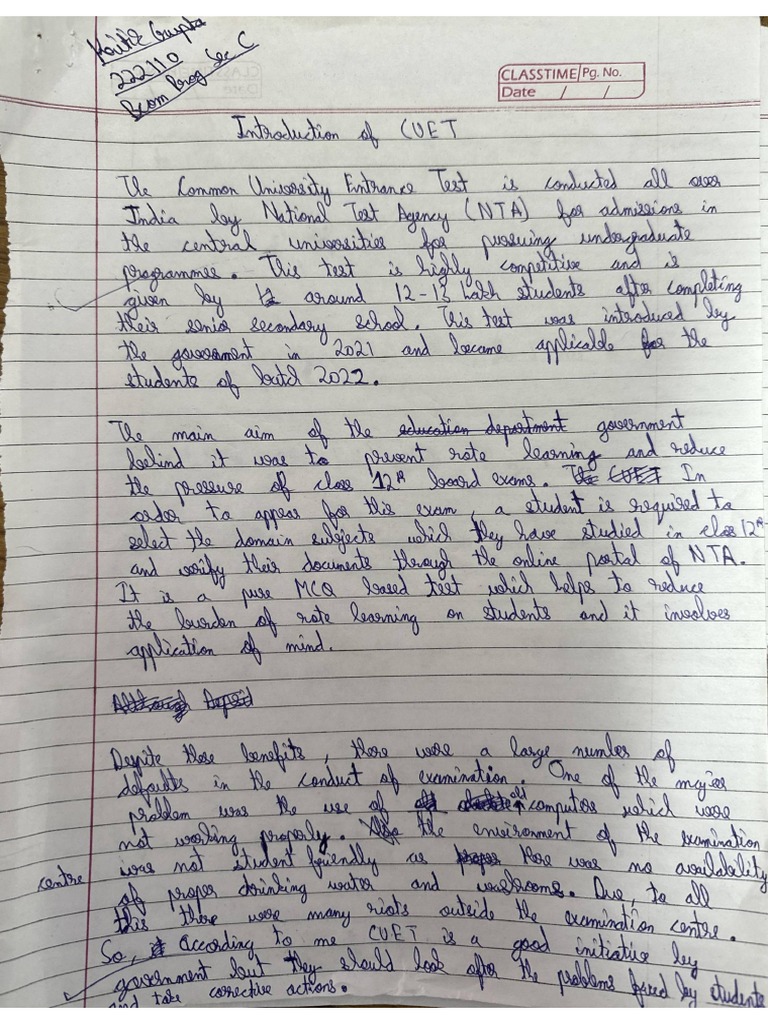 Kartik Gupta
222110
Bcom Prog Sec C
CLASSTIME Pg. No.
Date / /
Introduction of CUET
The Common University Entrance Test is conducted all over
India by National Test Agency (NTA) for admissions in
the central universities for pursuing undergraduate
programmes. This test is highly competitive and is
given by around 12-13 lakh students after completing
their senior secondary school. This test was introduced by
the government in 2021 and became applicable for the
students of batch 2022.
The main aim of the education department government
behind it was to prevent rote learning and reduce
the pressure of class 12th board exams. The CUET In
order to appear for this exam, a student is required to
select the domain subjects which they have studied in class 12th
and verify their documents through the online portal of NTA.
It is a pure MCQ based test which helps to reduce
the burden of rote learning on students and it involves
application of mind.
Despite these benefits, there were a large number of
defaults in the conduct of examination. One of the major
problem was the use of old computers which were
not working properly. Also the environment of the examination
centre was not student friendly as proper there was no availability
of proper drinking water and washrooms. Due, to all
this there were many riots outside the examination centre.
So, according to me CUET is a good initiative by
government but they should look after the problems faced by students
and take corrective actions.